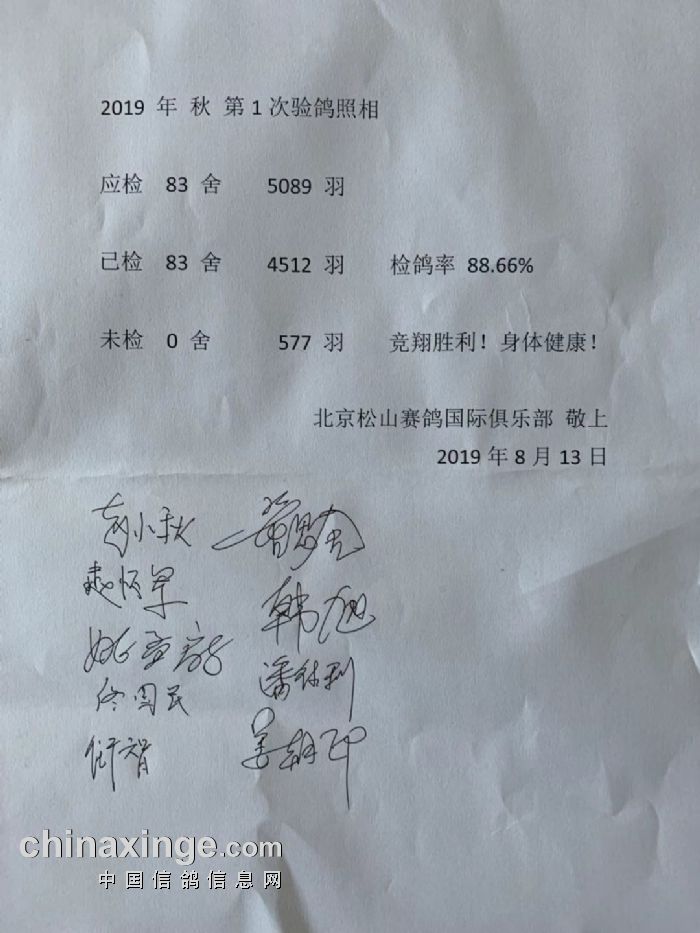 2019 年 秋 第 1 次验鸽照相
应检 83 舍 5089 羽
已检 83 舍 4512 羽 检鸽率 88.66%
未检 0 舍 577 羽 竞翔胜利！身体健康！
北京松山赛鸽国际俱乐部 敬上
2019 年 8 月 13 日
小秋
赵怀军
韩旭
佟国民
chinaxinge.com
中国信鸽信息网